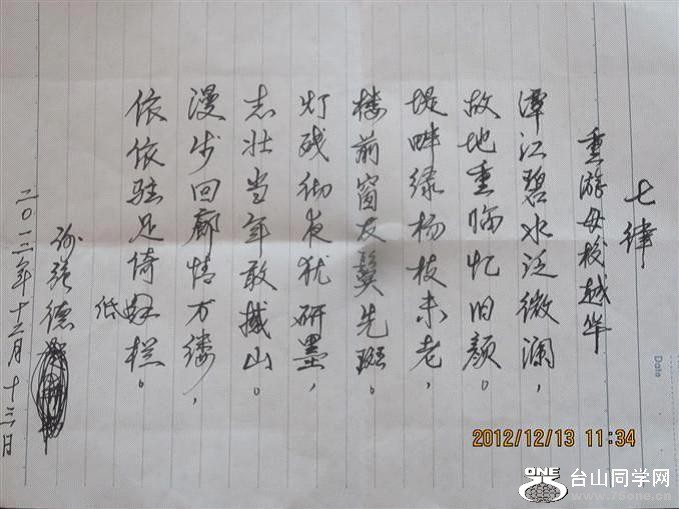 七律
重游母校越华
潭江碧水泛微澜，
故地重临忆旧颜。
堤畔绿杨枝未老，
楼前窗友鬓先斑。
灯残彻夜犹研墨，
志壮当年敢撼山。
漫步回廊情万缕，
依依驻足倚低栏。
强德
二0一二年十二月十三日
Date
2012/12/13 11:34
ONE 台山同学网